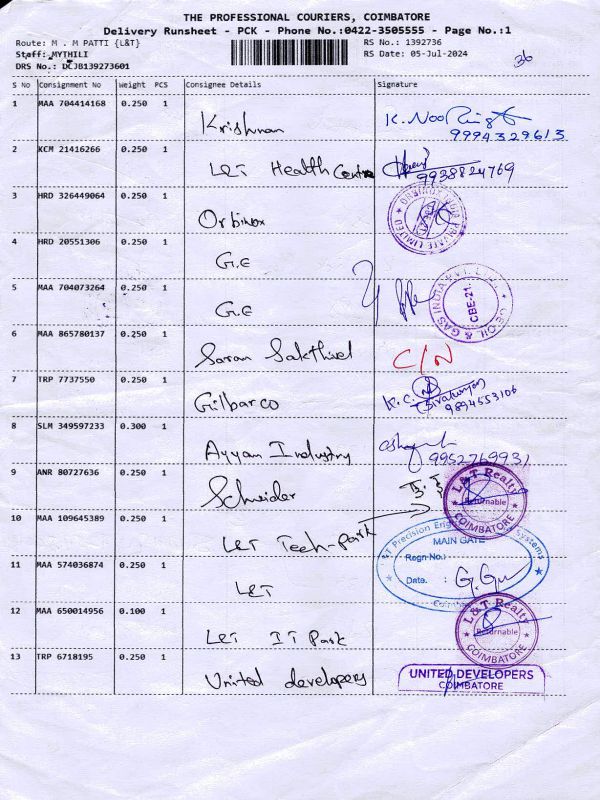 THE PROFESSIONAL COURIERS, COIMBATORE
Delivery Runsheet - PCK - Phone No.:0422-3505555 - Page No.:1
Route: M . M PATTI {L&T}
RS No.: 1392736
Staff: MYTHILI
RS Date: 05-Jul-2024
36
DRS No.: DCJB139273601
S No Consignment No Weight PCS Consignee Details Signature
1 MAA 704414168 0.250 1 Krishnan
9994329613
2 KCM 21416266 0.250 1 L&T Health Centre
9938824769
3 HRD 326449064 0.250 1 Orbinox
ORBINOX INDIA PRIVATE LIMITED
4 HRD 20551306 0.250 1 G.E
5 MAA 704073264 0.250 1 G.E
GE OIL & GAS INDIA PVT. LTD.
CBE-21.
6 MAA 865780137 0.250 1 Saran Sakthivel C/N
7 TRP 7737550 0.250 1 Gilbarco K.C.
9894553106
8 SLM 349597233 0.300 1 Ayyam Industry
9952769931
9 ANR 80727636 0.250 1 Schnider
L&T Realty
Returnable
COIMBATORE
10 MAA 109645389 0.250 1 L&T Tech-park
L&T Precision Engineering Systems
MAIN GATE
Regn No.:
Date. :
11 MAA 574036874 0.250 1 L&T
12 MAA 650014956 0.100 1 L&T IT Park
L&T Realty
Returnable
COIMBATORE
13 TRP 6718195 0.250 1 United developers
UNITED DEVELOPERS
COIMBATORE